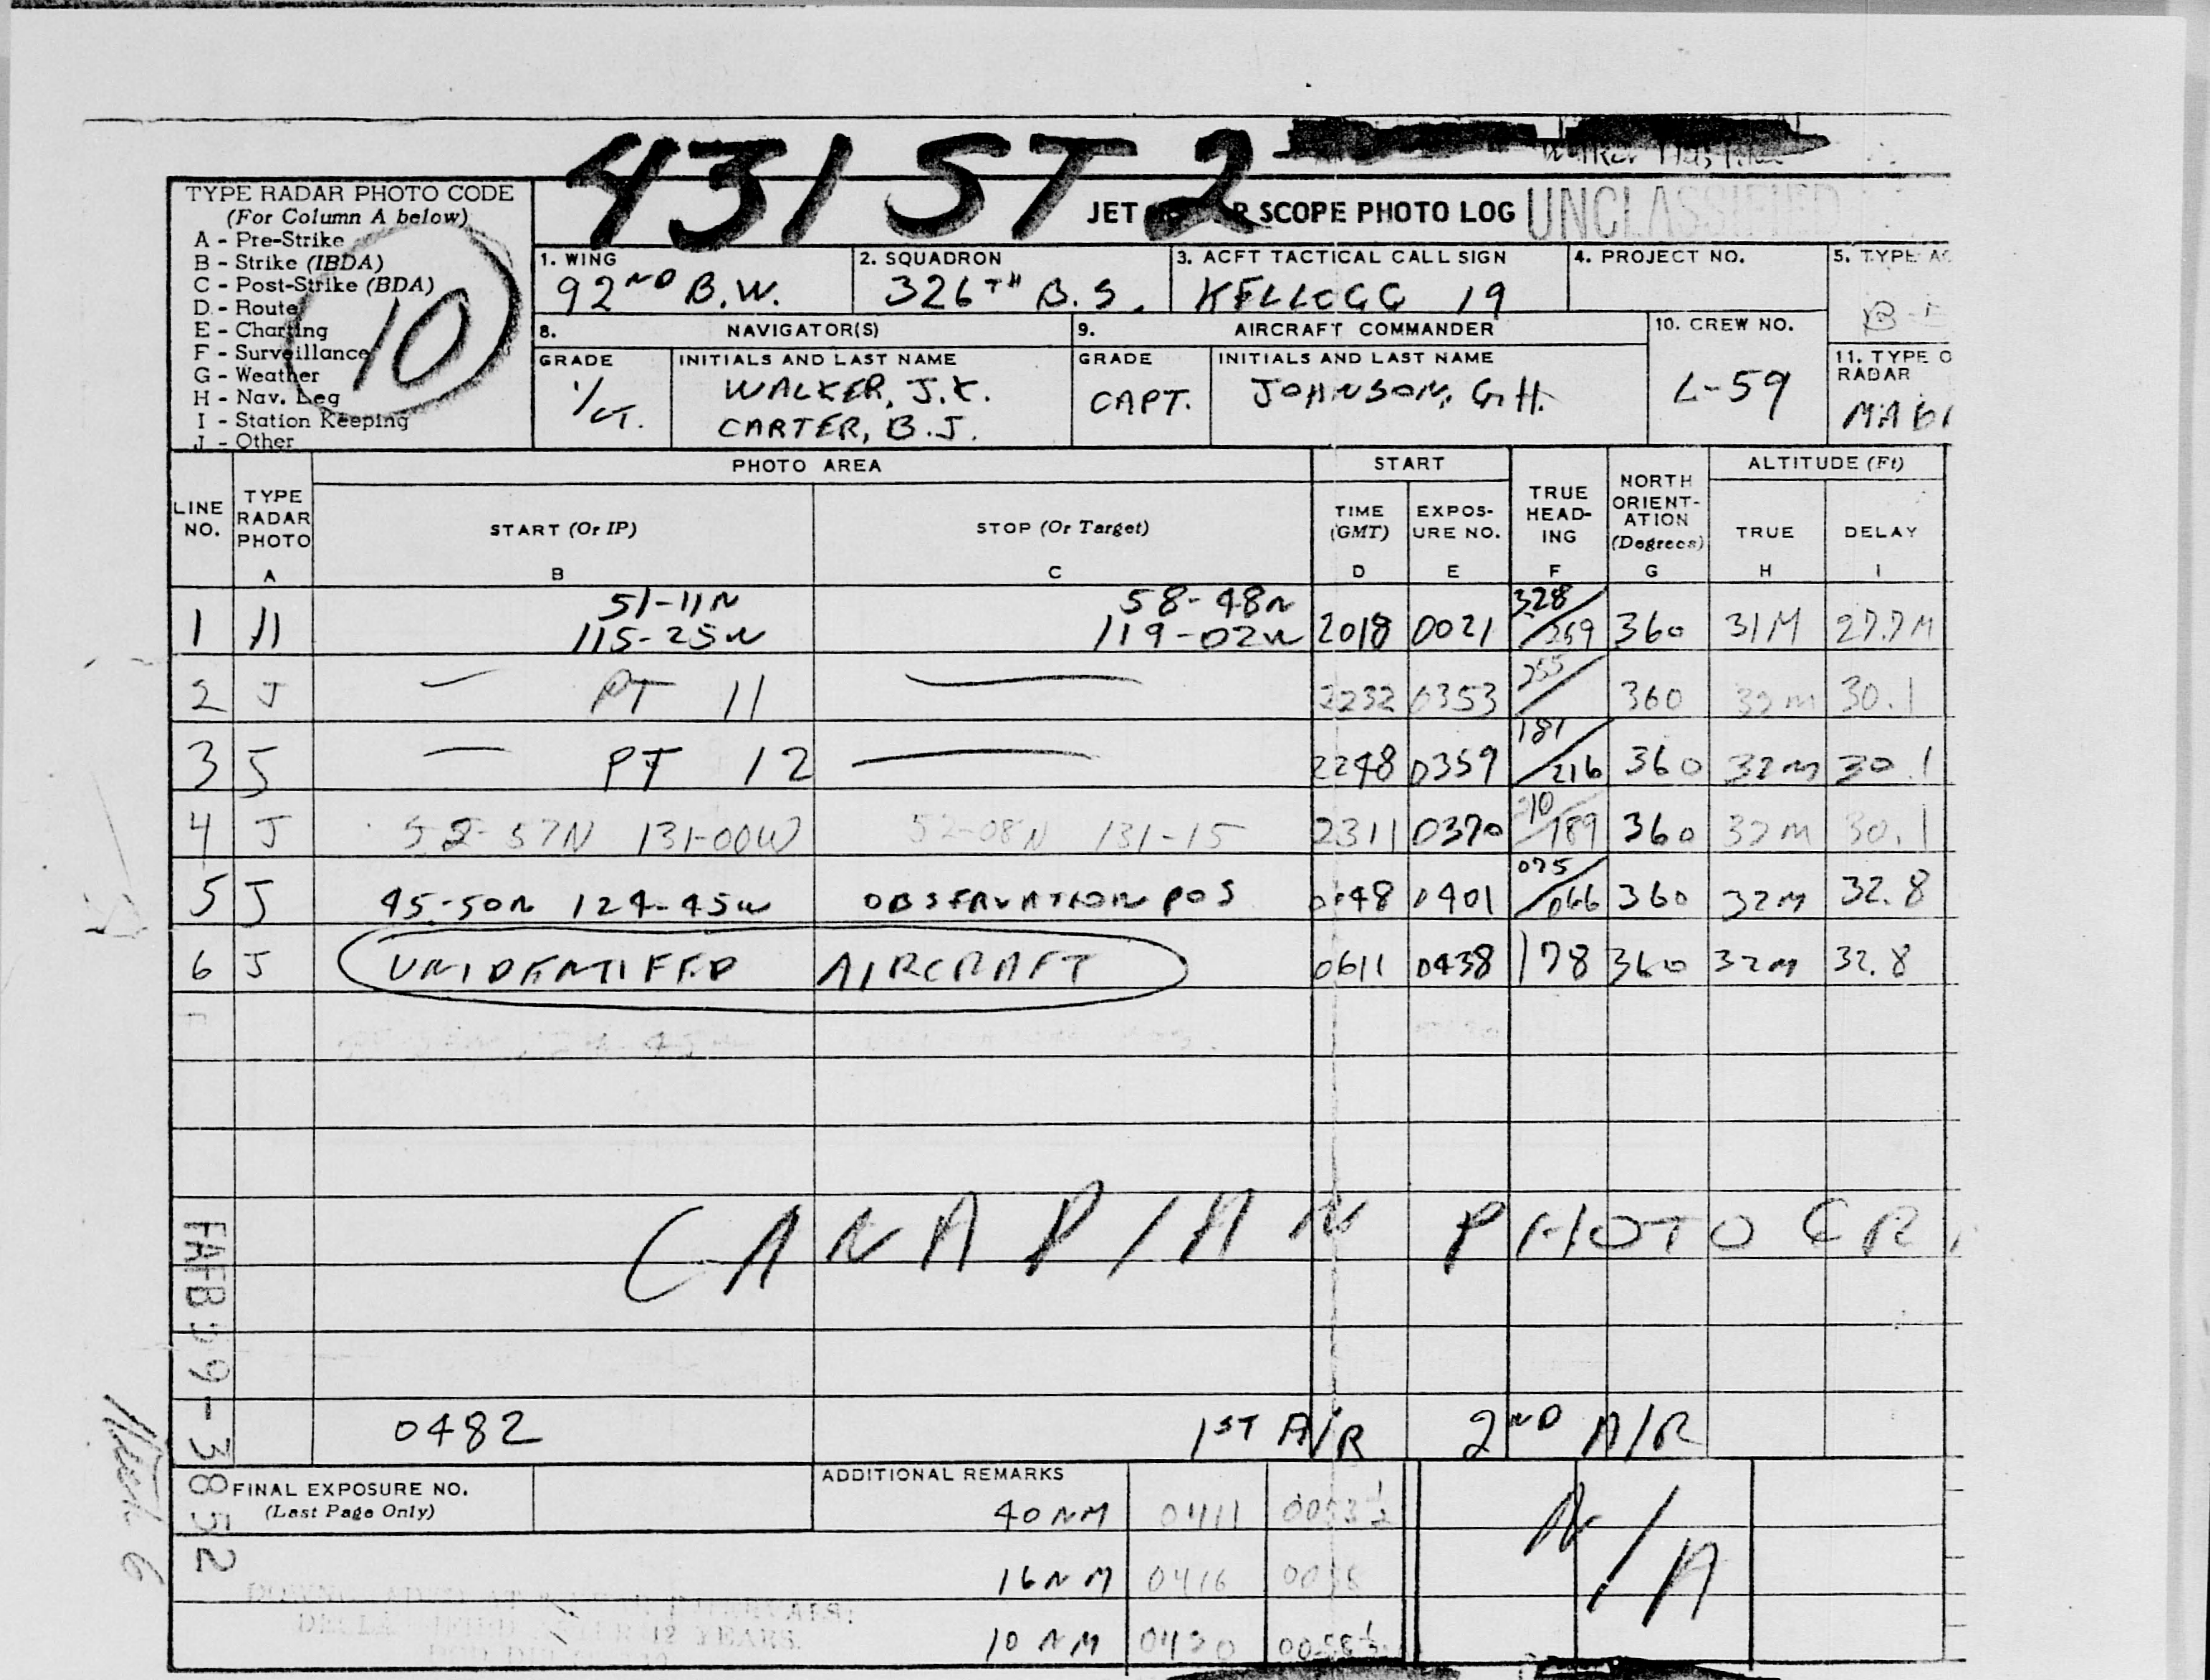 431 ST 2
TYPE RADAR PHOTO CODE
(For Column A below)
A - Pre-Strike
B - Strike (IBDA)
C - Post-Strike (BDA)
D - Route
E - Charting
F - Surveillance
G - Weather
H - Nav. Leg
I - Station Keeping
J - Other
10
JET SCOPE PHOTO LOG
UNCLASSIFIED
1. WING
92ND B.W.
2. SQUADRON
326TH B.S.
3. ACFT TACTICAL CALL SIGN
KELLOGG 19
4. PROJECT NO.
5. TYPE AC
8. NAVIGATOR(S)
GRADE
1/LT.
INITIALS AND LAST NAME
WALKER, J.K.
CARTER, B.J.
9. AIRCRAFT COMMANDER
GRADE
CAPT.
INITIALS AND LAST NAME
JOHNSON, G.H.
10. CREW NO.
L-59
11. TYPE O
RADAR
LINE NO.
TYPE RADAR PHOTO
A
PHOTO AREA
START (Or IP)
B
STOP (Or Target)
C
START
TIME (GMT)
D
EXPOS-URE NO.
E
TRUE HEAD-ING
F
NORTH ORIENT-ATION (Degrees)
G
ALTITUDE (Ft)
TRUE
H
DELAY
I
51-11N 58-48N 328
1 115-25W 119-02W 2018 0021 /269 360 31M 27.7M
2 J — PT 11 — 2232 0353 255/ 360 32M 30.1
3 J — PT 12 — 2248 0359 181/216 360 32M 30.1
4 J 52-57N 131-00W 52-08N 131-15 2311 0370 /189 360 32M 30.1
5 J 45-50N 124-45W OBSERVATION POS 0048 0401 075/066 360 32M 32.8
6 J UNIDENTIFED AIRCRAFT 0611 0438 178 360 32M 32.8
CANADIAN PHOTO CR
0482
1ST A/R 2ND A/R
FINAL EXPOSURE NO.
(Last Page Only)
ADDITIONAL REMARKS
40 NM 0411
16 NM 0416
10 NM 0420 0058½
N/A
FAFB 59-3852
12 YEARS